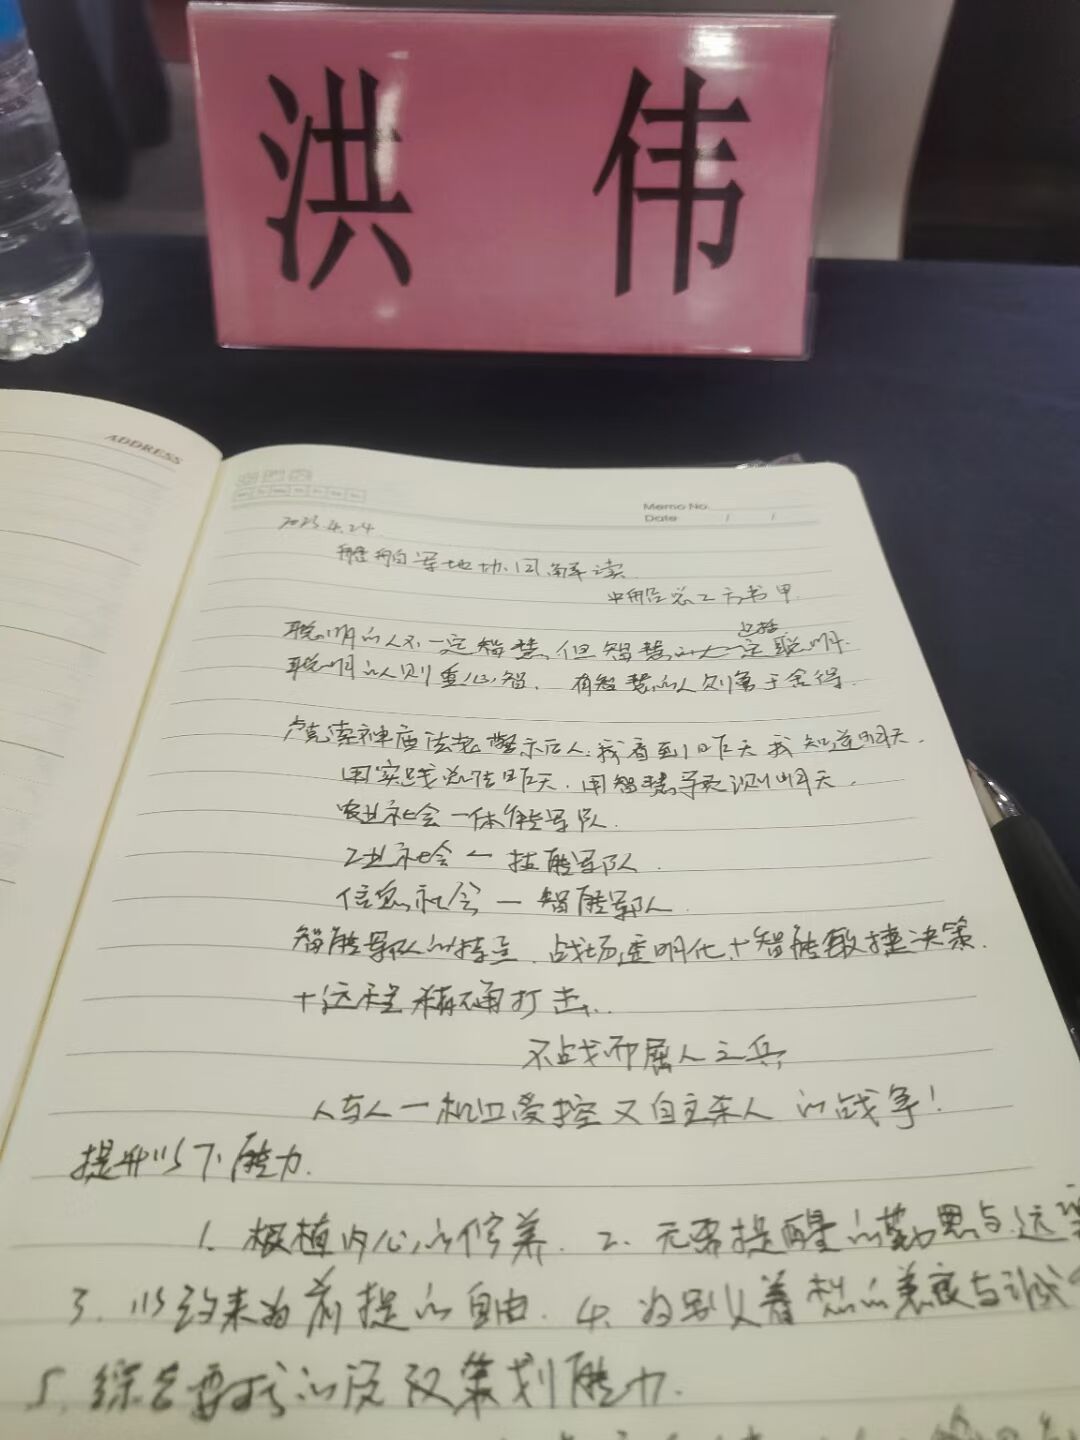 洪 伟
ADDRESS
Memo No.
Date / /
2023.4.24
解读
中船 总工
聪明的人不一定智慧,但智慧的人一定聪明.
包括
聪明的人则重心智. 有智慧的人则勇于舍得.
卢克索神庙法老警示后人:我看到昨天我知道明天.
用实践总结昨天.用智慧预测明天.
农业社会一体能军队.
工业社会一技能军队.
信息社会一智能军队.
智能军队的特点.战场透明化.+智能敏捷决策.
+远程精确打击..
不战而屈人之兵
人与人一机口受控又自主杀人的战争!
提升以下能力.
1. 根植内心的修养. 2. 无需提醒的勤思与远
3. 以约束为前提的自由. 4. 为别人着想的善良与诚
5. 综合要求的 策划能力.